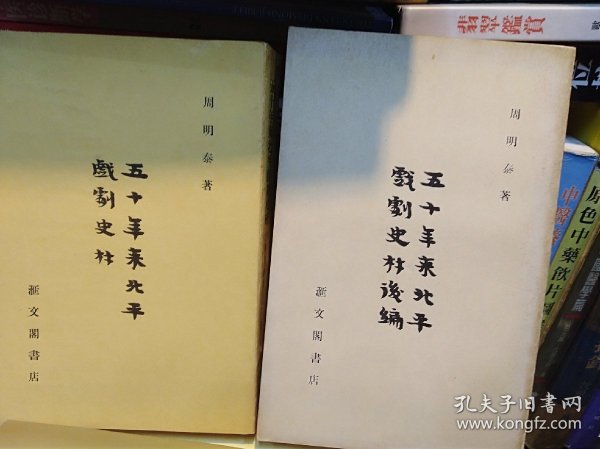 周明泰著
五十年来北平
戲劇史材
滙文閣書店
周明泰著
五十年来北平
戲劇史材後編
滙文閣書店
翡翠鑑賞
原色中藥飲片
孔夫子旧书网
www.kongfz.com